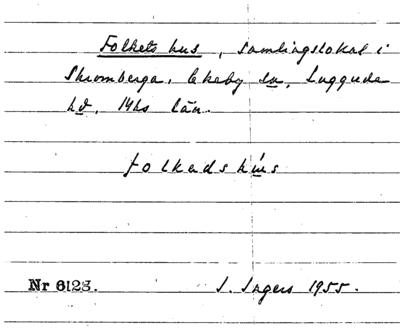 Folkets hus, samlingslokal i
Skromberga, Ekeby sn, Luggude
hd, Mhs län.
folkadshus
Nr 6128.
S. Ingers 1955.